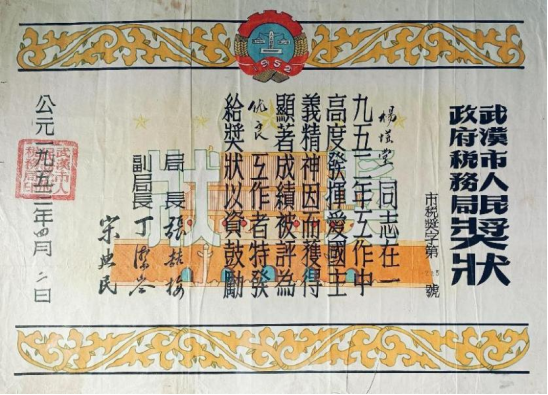 1952
武漢市人民
政府税務局
獎狀
市税獎字第 號
楊 堂同志在一
九五二年工作中
高度發揮愛國主
義精神因而獲得
顯著成績被評為
優良工作者特發
給獎狀以資鼓勵
局長張
副局長丁
宋 民
公元一九五三年四月 日